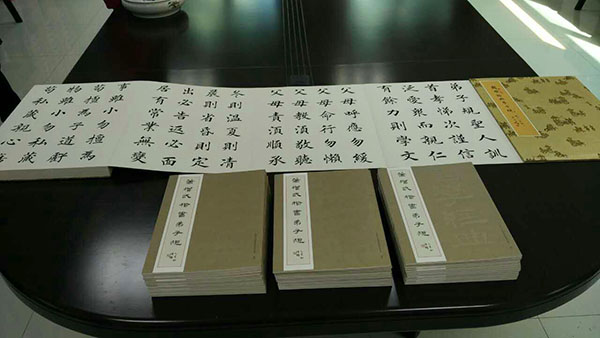 弟子規聖人訓
首孝悌次謹信
泛愛眾而親仁
有餘力則學文
父母呼應勿緩
父母命行勿懶
父母教須敬聽
父母責須順承
冬則溫夏則凊
晨則省昏則定
出必告返必面
居有常業無變
事雖小勿擅為
苟擅為子
物雖小勿私藏
苟私藏親心
楷書弟子規
楷書弟子規
楷書弟子規